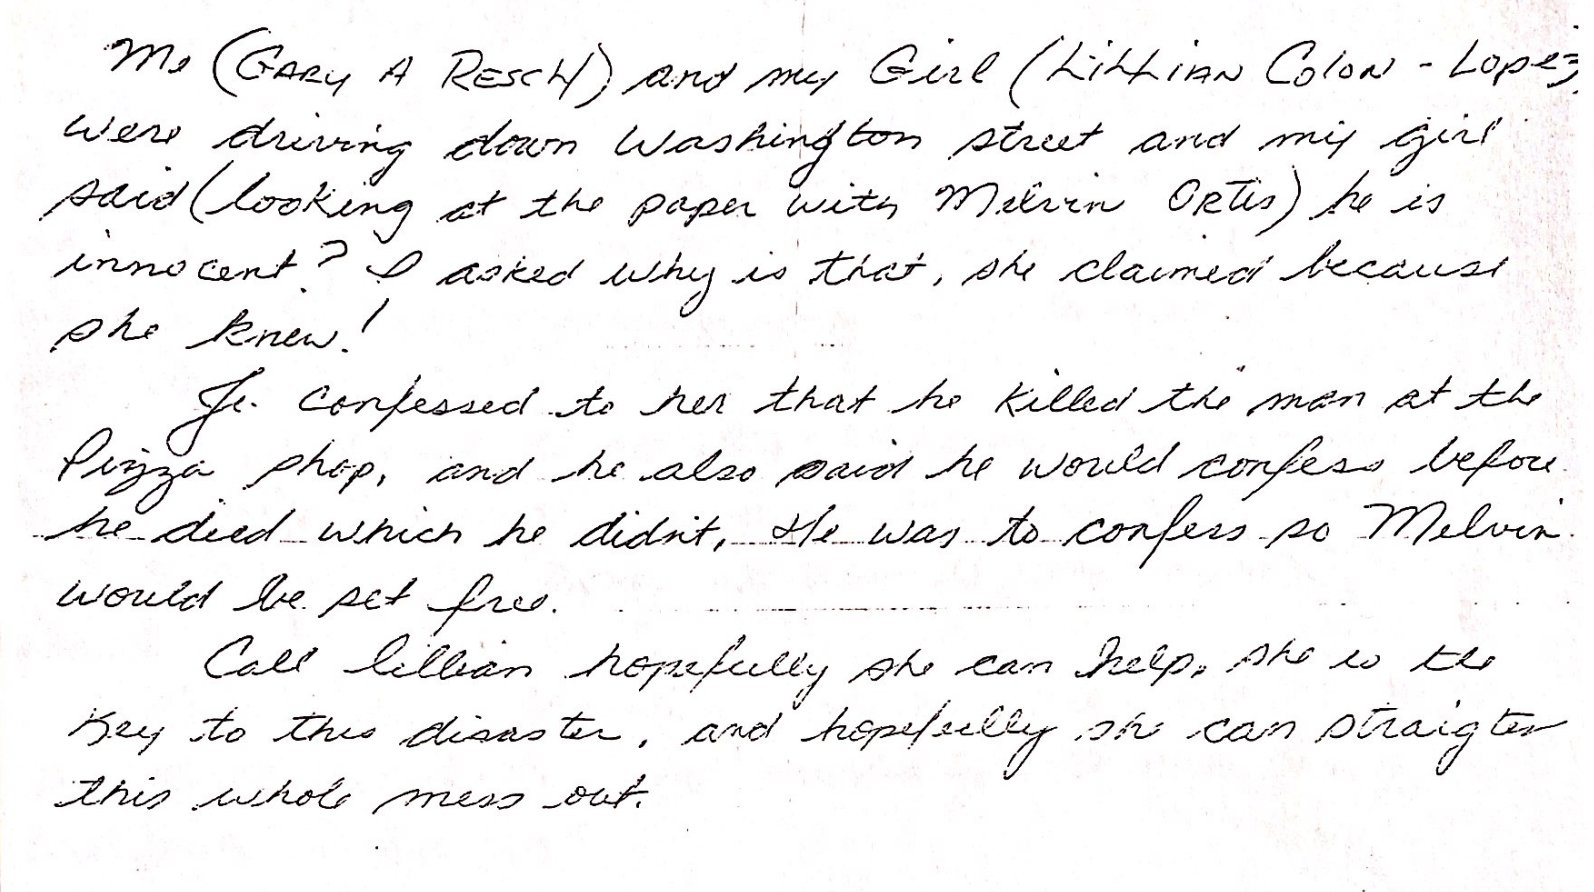 Me (GARY A RESCH) and my Girl (LiLLiAN COlON - Lopez)
were driving down Washington street and my girl
said (looking at the paper with Melvin ORTis) he is
innocent? I asked why is that, she claimed because
she knew!
Jr. confessed to her that he killed the man at the
Pizza shop, and he also said he would confess before
he died which he didn't, He was to confess so Melvin
would be set free.
Call lillian hopefully she can help, she is the
Key to this disaster, and hopefully she can straigten
this whole mess out.